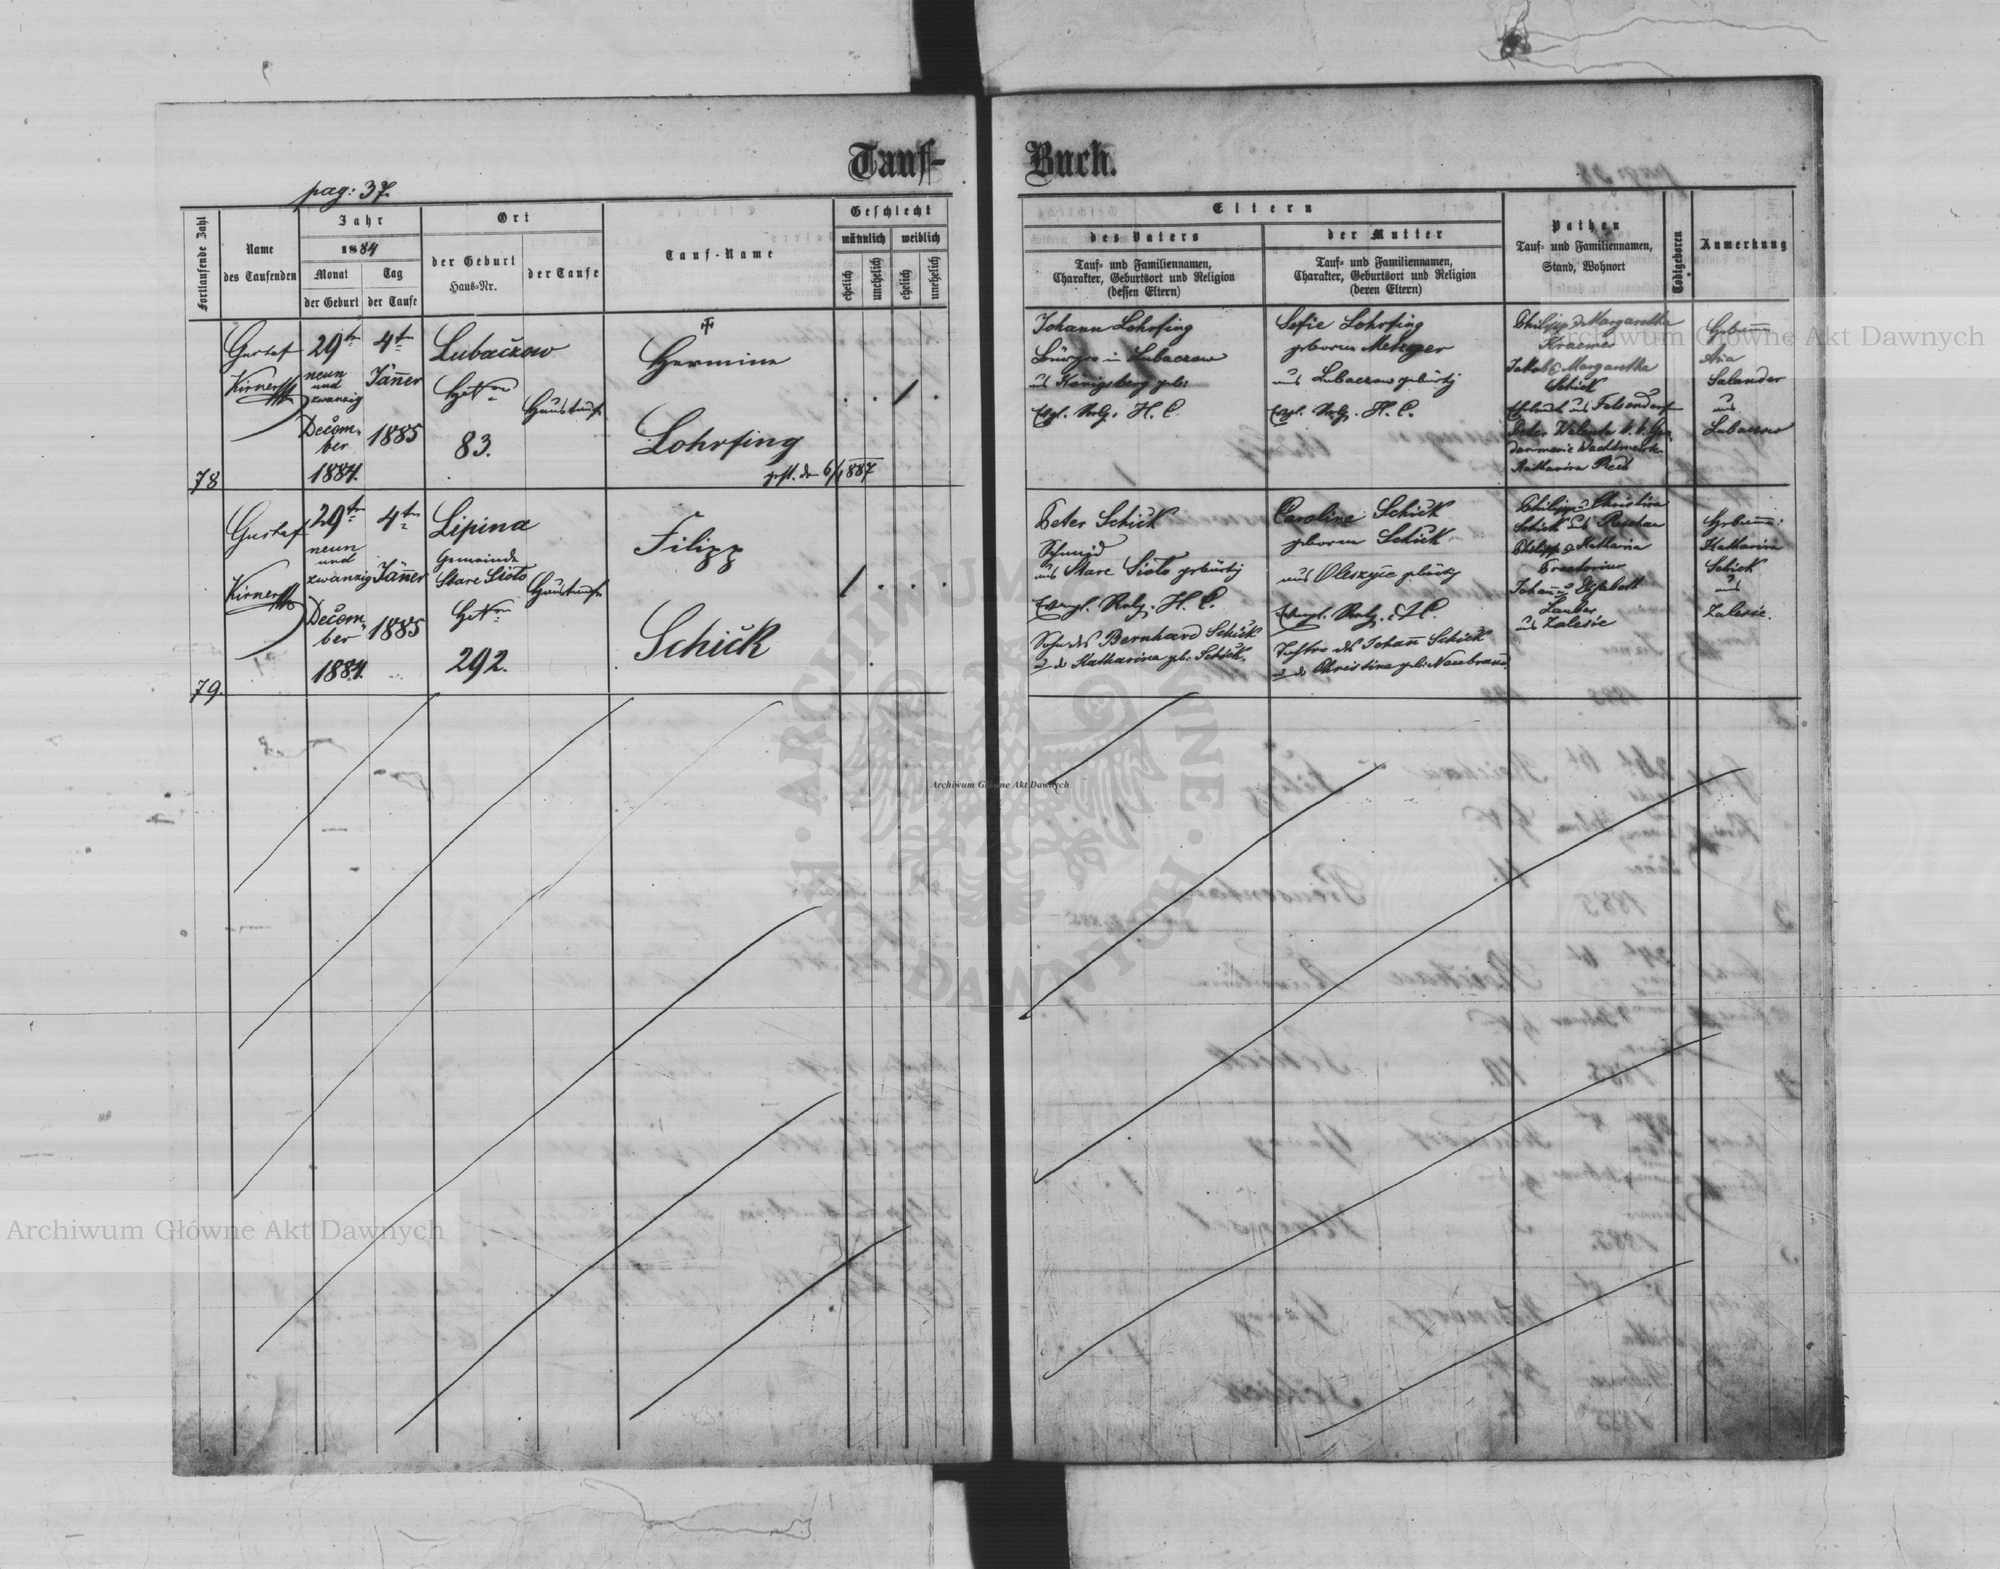 Tauf-Buch.
pag: 37.
Fortlaufende Zahl
Name
des Taufenden
Jahr
1884
Monat
der Geburt
Tag
der Taufe
Ort
der Geburt
Haus-Nr.
der Taufe
Tauf-Name
Geschlecht
männlich
weiblich
ehelich
unehelich
ehelich
unehelich
Eltern
des Vaters
Tauf- und Familiennamen,
Charakter, Geburtsort und Religion
(dessen Eltern)
der Mutter
Tauf- und Familiennamen,
Charakter, Geburtsort und Religion
(deren Eltern)
Pathen
Tauf- und Familiennamen,
Stand, Wohnort
Todtgeboren
Anmerkung
78
Gustaf
Kirner
29te
neun
und
zwanzig
Decem-
ber
1884.
4te
Jäner
1885
Lubaczow
HsNro
83.
Haustaufe
Hermine
Lohrfing
gest. den 6/1 887
Johann Lohrfing
Bürger in Lubaczow
aus Königsberg geb:
Evgl. Relg. H. C.
Sofie Lohrfing
geborene Metzger
aus Lubaczow gebürtig
Evgl. Relg. H. C.
Philipp & Margaretha
Kraemer
Jakob & Margaretha
Schick
Eheleute aus Felsendorf
Peter Walenta k. k. Gen-
darmerie Wachtmeister
Katharina Reis
Hebamme
Salander
aus
Lubaczow
79.
Gustaf
Kirner
29te
neun
und
zwanzig
Decem-
ber
1884.
4te
Jänner
1885
Lipina
Gemeinde
Stare Sioło
HsNro
292.
Haustaufe
Filipp
Schick
Peter Schick
Schmid
aus Stare Sioło gebürtig
Evangl. Relg. H. C.
Sohn des Bernhard Schick
und der Katharina geb. Schick.
Caroline Schick
geborene Schick
aus Oleszyce gebürtig
Evangl. Relg. H. C.
Tochter des Johann Schick
und der Christina geb. Neubrand
Philipp u Christina
Schick aus Reichau
Philipp & Katharina
Praetorius
Johann u Elisabeth
Lauber
aus Zalesie
Hebamme:
Katharina
Schick
aus
Zalesie.
Archiwum Główne Akt Dawnych
Archiwum Główne Akt Dawnych
Archiwum Główne Akt Dawnych
ARCHIWUM GŁÓWNE AKT DAWNYCH